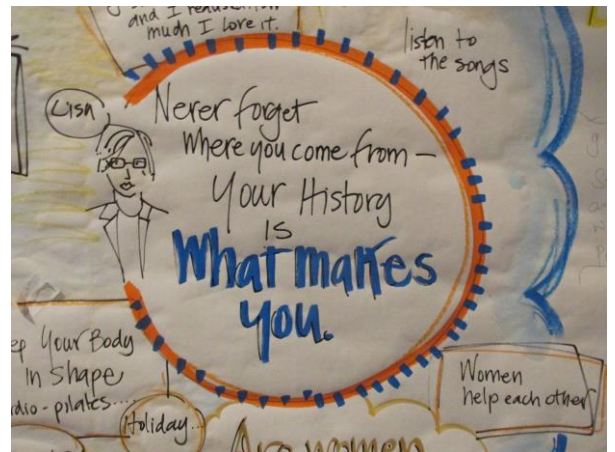 and I
much I love it.
listen to
the songs
Lisa
Never forget
Where you come from –
Your History
IS
What makes
you.
Your Body
In Shape
pilates....
Holiday...
Women
help each other
Are women